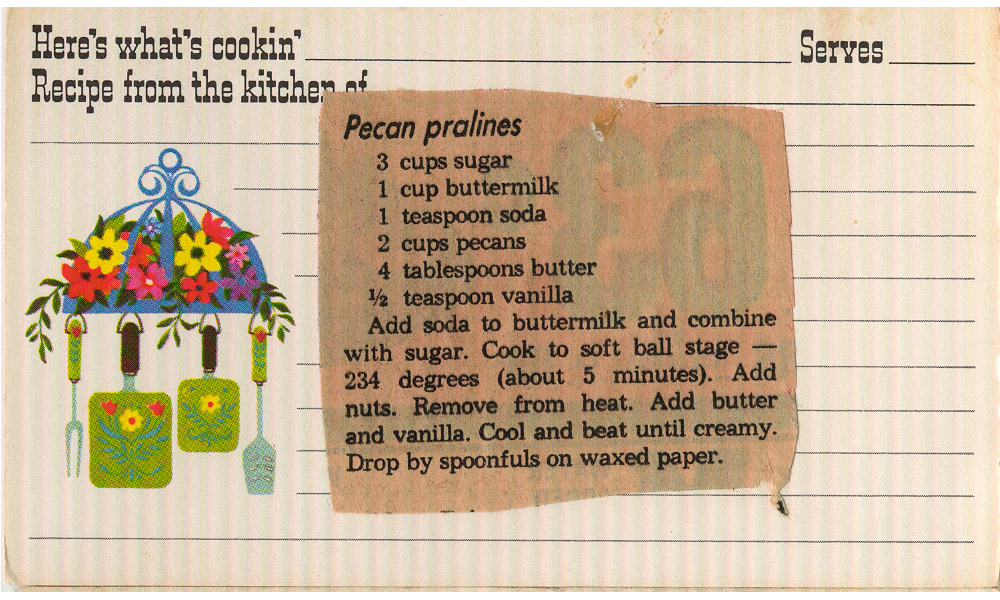 Here's what's cookin'
Serves
Recipe from the kitchen of
Pecan pralines
3 cups sugar
1 cup buttermilk
1 teaspoon soda
2 cups pecans
4 tablespoons butter
½ teaspoon vanilla
Add soda to buttermilk and combine
with sugar. Cook to soft ball stage —
234 degrees (about 5 minutes). Add
nuts. Remove from heat. Add butter
and vanilla. Cool and beat until creamy.
Drop by spoonfuls on waxed paper.